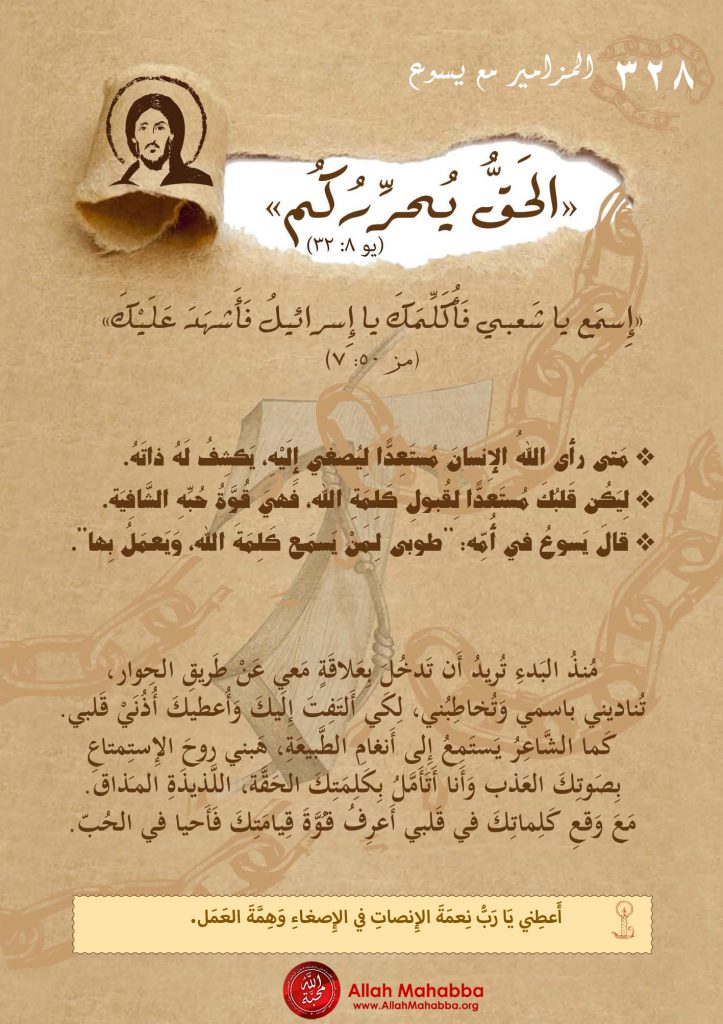 ٣٢٨ المزامير مع يسوع
«الحَقُّ يُحرِّرُكُم»
(يو ٨: ٣٢)
«إِسمَع يا شَعبي فَأُكَلِّمَكَ يا إِسرائيلُ فَأَشهَدَ عَلَيْكَ»
(مز ٥٠: ٧)
❖ مَتى رأى اللهُ الإِنسانَ مُستَعِدًّا ليُصغي إِلَيْه، يَكشِفُ لَهُ ذاتَهُ.
❖ لِيَكُن قَلبُكَ مُستَعِدًّا لِقُبولِ كَلمَة الله، فَهيَ قُوَّةُ حُبِّهِ الشَّافِيَة.
❖ قالَ يَسوعُ في أُمِّه: "طوبى لَمَنْ يَسمَع كَلِمَةَ الله، وَيَعمَلُ بِها".
مُنذُ البَدءِ تُريدُ أَن تَدخُلَ بِعَلاقَةٍ مَعي عَنْ طَريقِ الحِوار،
تُناديني باسمي وَتُخاطِبُني، لِكَي أَلتفِتَ إِلَيكَ وَأُعطيكَ أُذُنَيْ قَلبي.
كَما الشَّاعِرُ يَستَمِعُ إِلى أَنغامِ الطَّبيعَةِ، هَبني روحَ الإِستِمتاعِ
بِصَوتِكَ العَذب وَأَنا أَتَأَمَّلُ بِكَلِمَتِكَ الحَقَّة، اللَّذيذَةِ المَذاق.
مَعَ وَقعِ كَلِماتِكَ في قَلبي أَعرِفُ قوَّةَ قِيامَتِكَ فَأَحيا في الحُبّ.
أَعطِني يَا رَبُّ نِعمَةَ الإِنصاتِ في الإِصغاءِ وَهِمَّةَ العَمَل.
الله محبة
Allah Mahabba
www.AllahMahabba.org